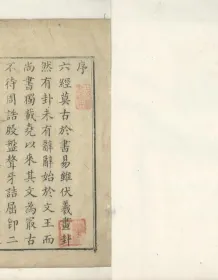 序
六經莫古於書易雖伏羲畫卦
然有卦未有辭辭始於文王而
尚書獨載堯以來其文為最古
不待周誥殷盤聱牙詰屈卽二